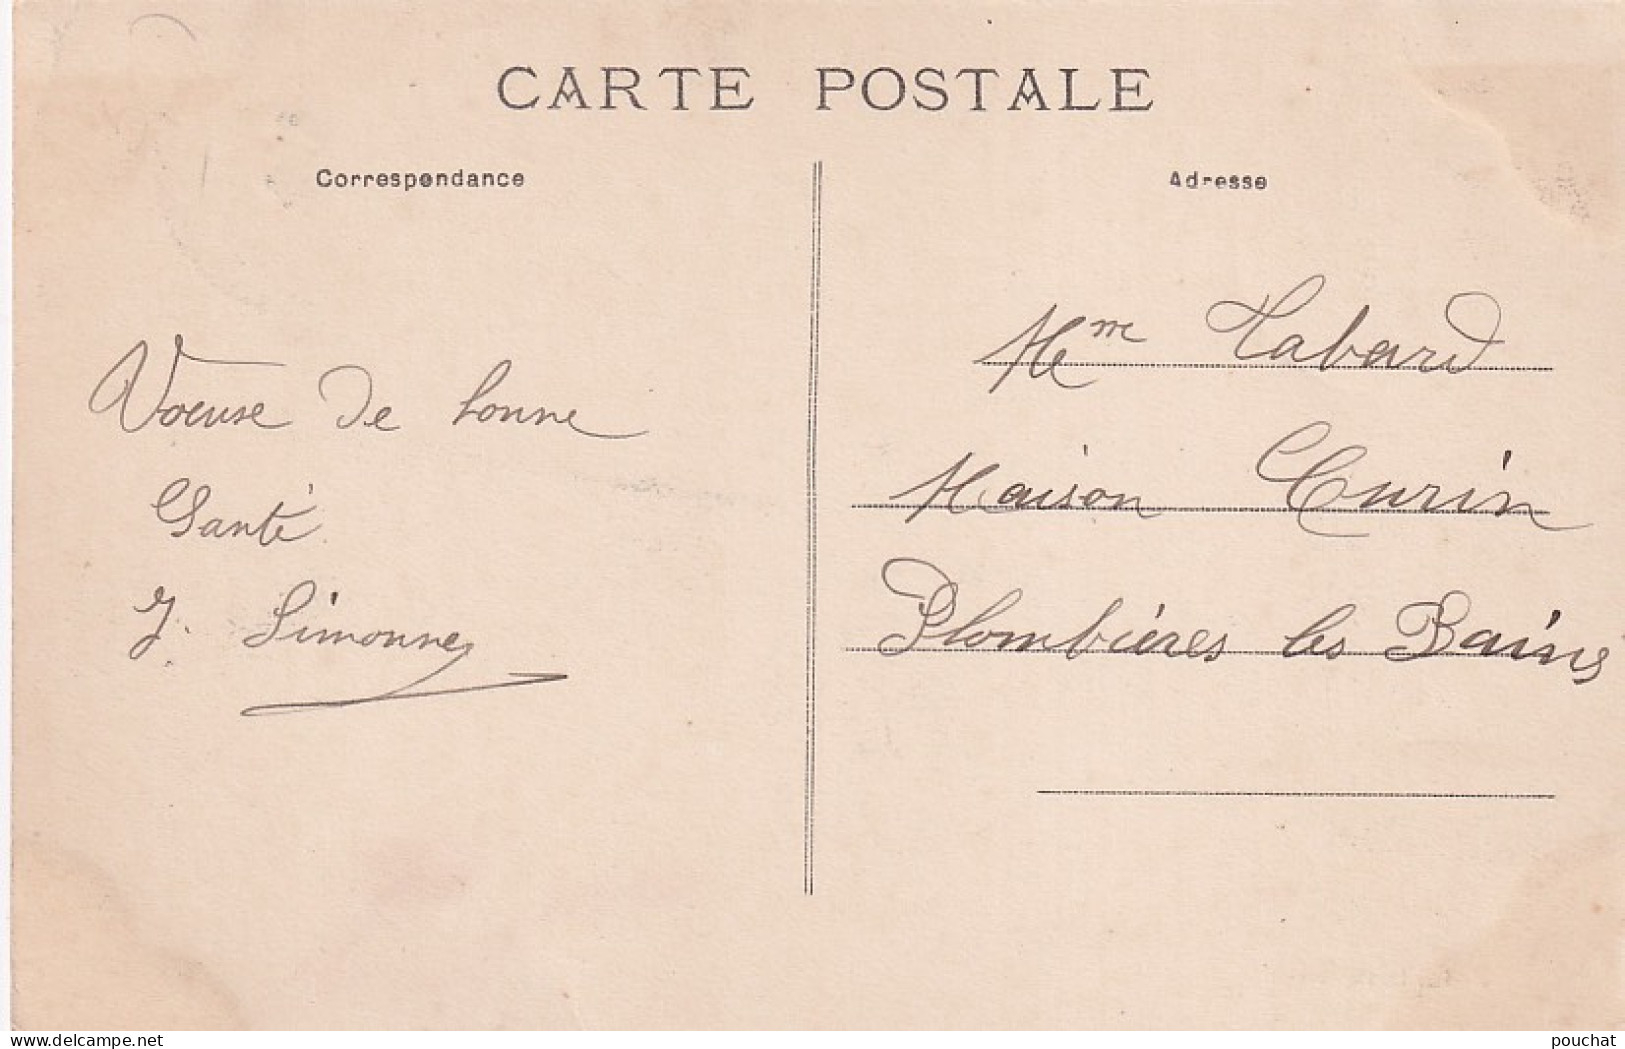 CARTE POSTALE
Correspondance
Adresse
Voeuse de bonne
Santé
J. Simonne
Mme Tabard
Maison Curin
Plombières les Bains
www.delcampe.net
pouchat